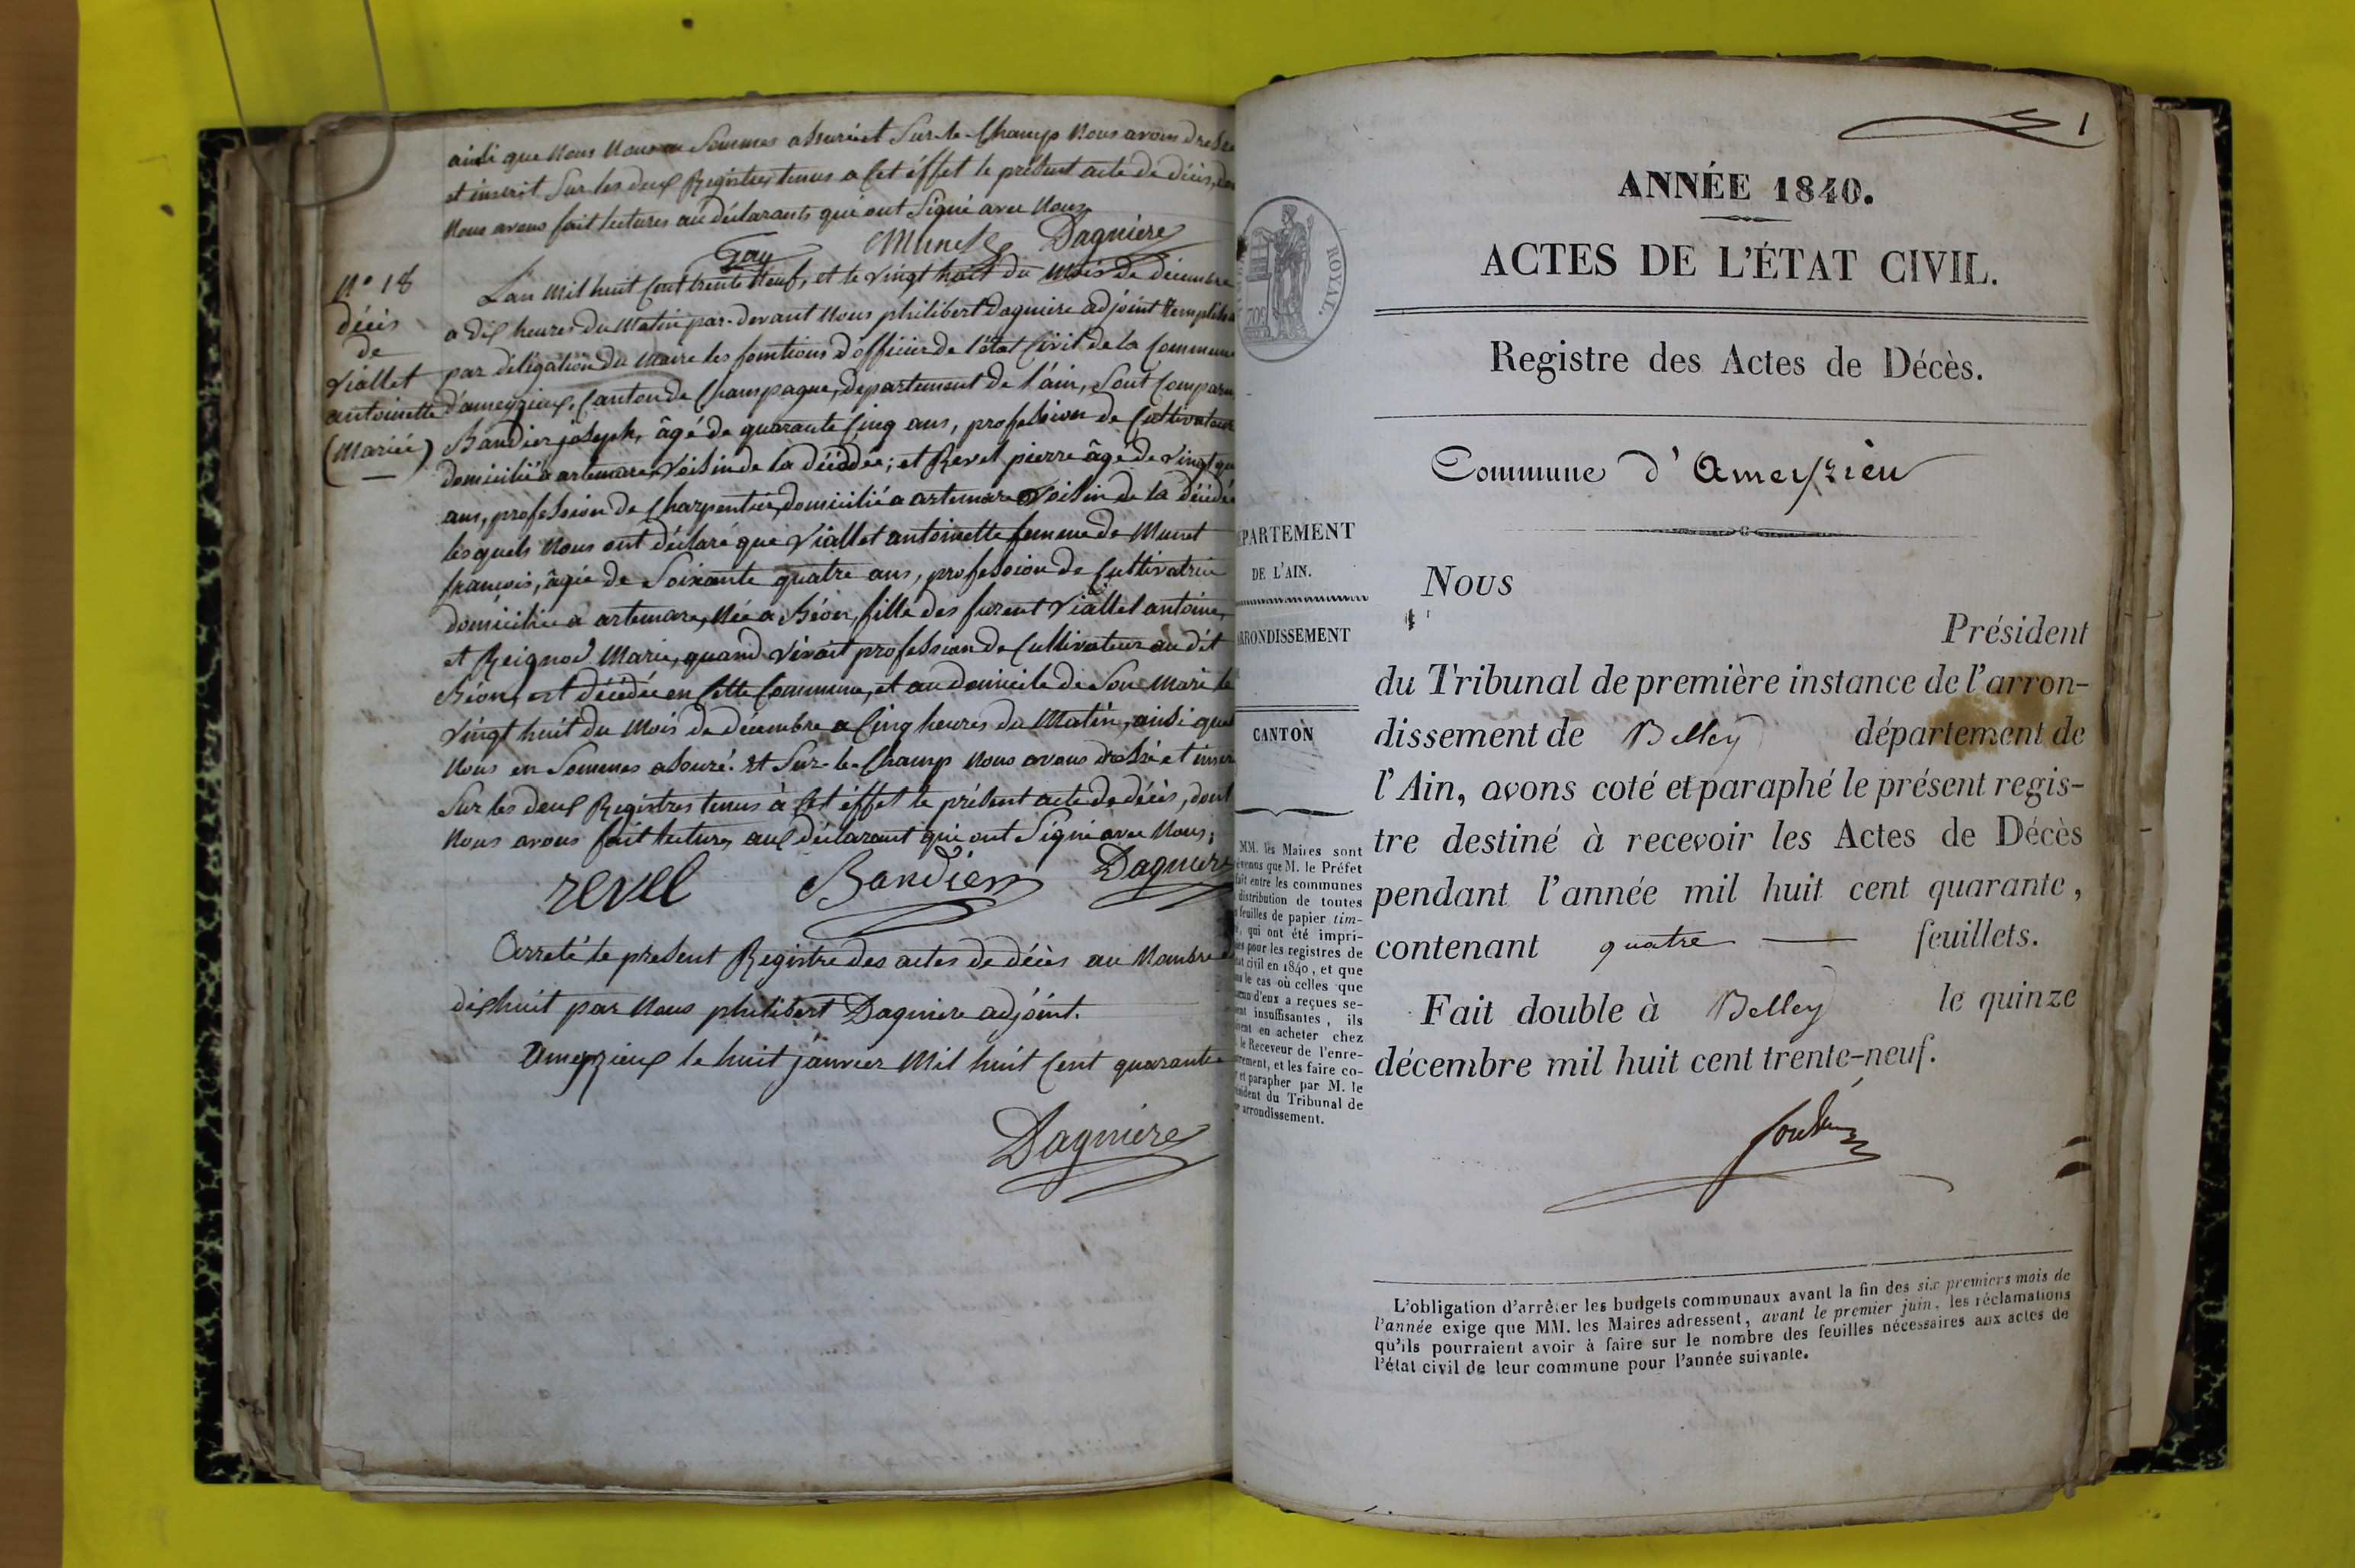 ainsi que nous nous en sommes assuré et sur-le-champ nous avons dressé
et inscrit sur les deux Registres tenus a cet éffet le présent acte de décès,
nous avons fait lectures au déclarants qui ont signé avec nous
Gay Munet Dagnière
N° 18
décès
de
Viallet
antoinette
(Mariée)
L'an mil huit cent trente neuf, et le vingt huit du mois de décembre
a dix heures du matin par-devant nous philibert Dagniere adjoint
par déligation du maire les fonctions d'officier de l'état civil de la commune
d'ameyzieux, canton de Champagne, departement de l'ain, sont comparu
Bandier joseph, âgé de quarante cinq ans, profession de Cultivateur
domicilié a artemare, voisin de la décédée; et Revel pierre âgé de vingt
ans, profession de Charpentier, domicilié a artemare voisin de la décédée
lesquels nous ont déclaré que Viallet antoinette femme de Munet
françois, âgée de soixante quatre ans, profession de Cultivatrice
domiciliée a artemare, née a Béon, fille des furent Viallet antoine,
et Reignod Marie, quand vivait profession de Cultivateur au dit
Béon, est décédée en cette commune, et au domicile de son mari le
vingt huit du mois de décembre a cinq heures du matin, ainsi que
nous en sommes assuré. et sur-le-champ nous avons dressé et
sur les deux Registres tenus à cet éffet le présent acte de décès, dont
nous avons fait lectures aux déclarant qui ont signé avec nous,
revel Bandier Dagniere
Arreté le present Registre des actes de décès au nombre
dixhuit par nous philibert Dagniere adjoint.
Ameyzieux le huit janvier mil huit cent quarante
Dagniere
1
ROYAL.
ANNÉE 1840.
ACTES DE L'ÉTAT CIVIL.
Registre des Actes de Décès.
Commune d'Ameyzieu
PARTEMENT
DE L'AIN.
RRONDISSEMENT
CANTON
MM. les Maires sont
évenus que M. le Préfet
fait entre les communes
distribution de toutes
feuilles de papier tim-
qui ont été impri-
pour les registres de
civil en 1840, et que
le cas où celles que
d'eux a reçues se-
insuffisantes, ils
en acheter chez
le Receveur de l'enre-
ment, et les faire co-
et parapher par M. le
ident du Tribunal de
arrondissement.
Nous
Président
du Tribunal de première instance de l'arron-
dissement de Belley département de
l'Ain, avons coté et paraphé le présent regis-
tre destiné à recevoir les Actes de Décès
pendant l'année mil huit cent quarante,
contenant quatre — feuillets.
Fait double à Belley le quinze
décembre mil huit cent trente-neuf.
L'obligation d'arrêter les budgets communaux avant la fin des six premiers mois de
l'année exige que MM. les Maires adressent, avant le premier juin, les réclamations
qu'ils pourraient avoir à faire sur le nombre des feuilles nécessaires aux actes de
l'état civil de leur commune pour l'année suivante.